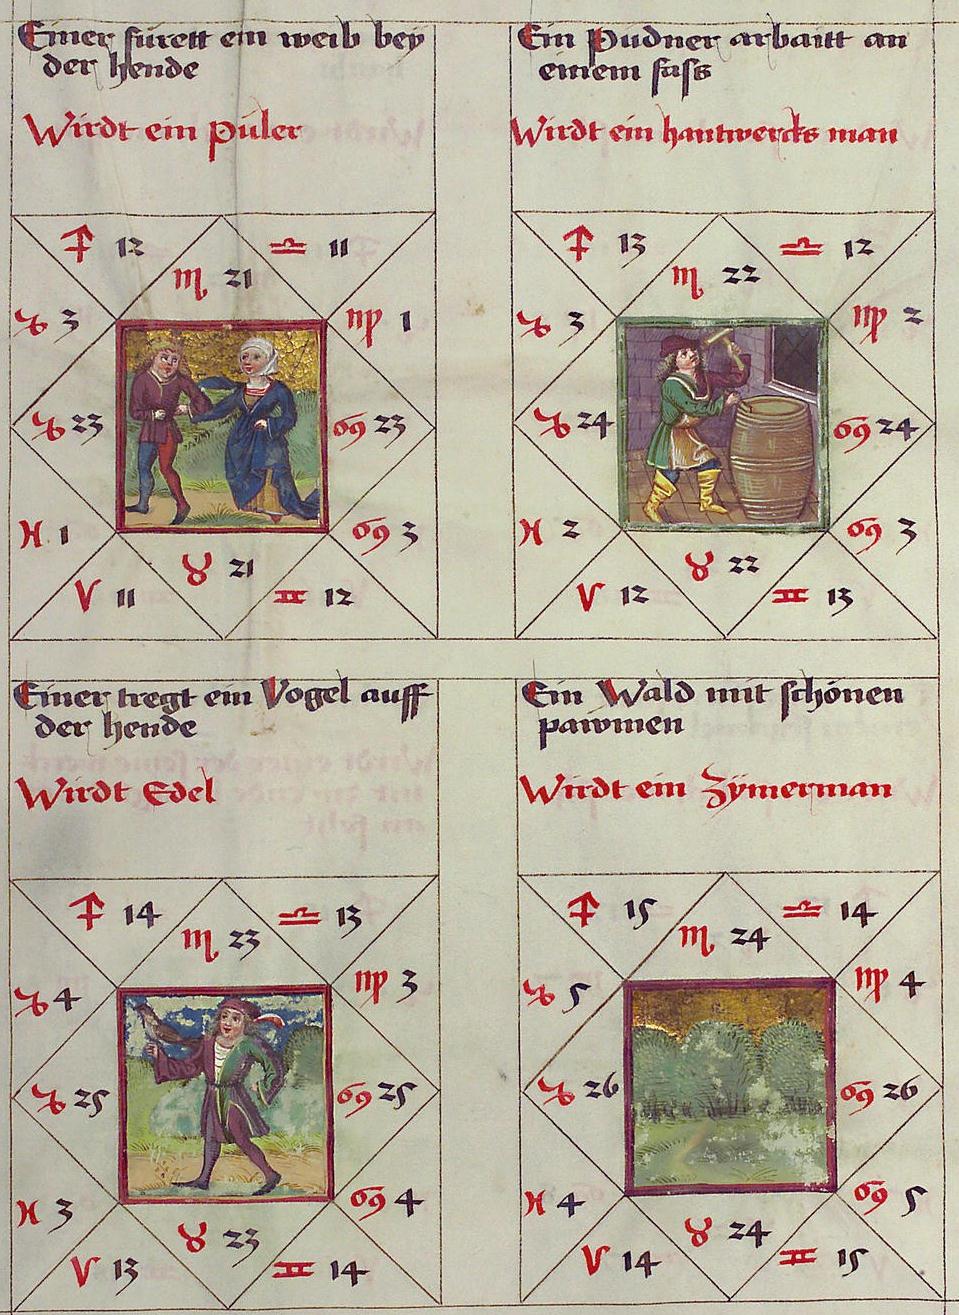 Einer fürett ein weib bey
der hende
Wirdt ein püler
♐ 12 ♎ 11
♏ 21
♑ 3 ♍ 1
♑ 23 ♋ 23
♓ 1 ♋ 3
♉ 21
♈ 11 ♊ 12
Ein Pudner arbaitt an
einem fass
Wirdt ein hantwercks man
♐ 13 ♎ 12
♏ 22
♑ 3 ♍ 2
♑ 24 ♋ 24
♓ 2 ♋ 3
♉ 22
♈ 12 ♊ 13
Einer tregt ein Vogel auff
der hende
Wirdt Edel
♐ 14 ♎ 13
♏ 23
♑ 4 ♍ 3
♑ 25 ♋ 25
♓ 3 ♋ 4
♉ 23
♈ 13 ♊ 14
Ein Wald mit schönen
pawmen
Wirdt ein Zÿmerman
♐ 15 ♎ 14
♏ 24
♑ 5 ♍ 4
♑ 26 ♋ 26
♓ 4 ♋ 5
♉ 24
♈ 14 ♊ 15